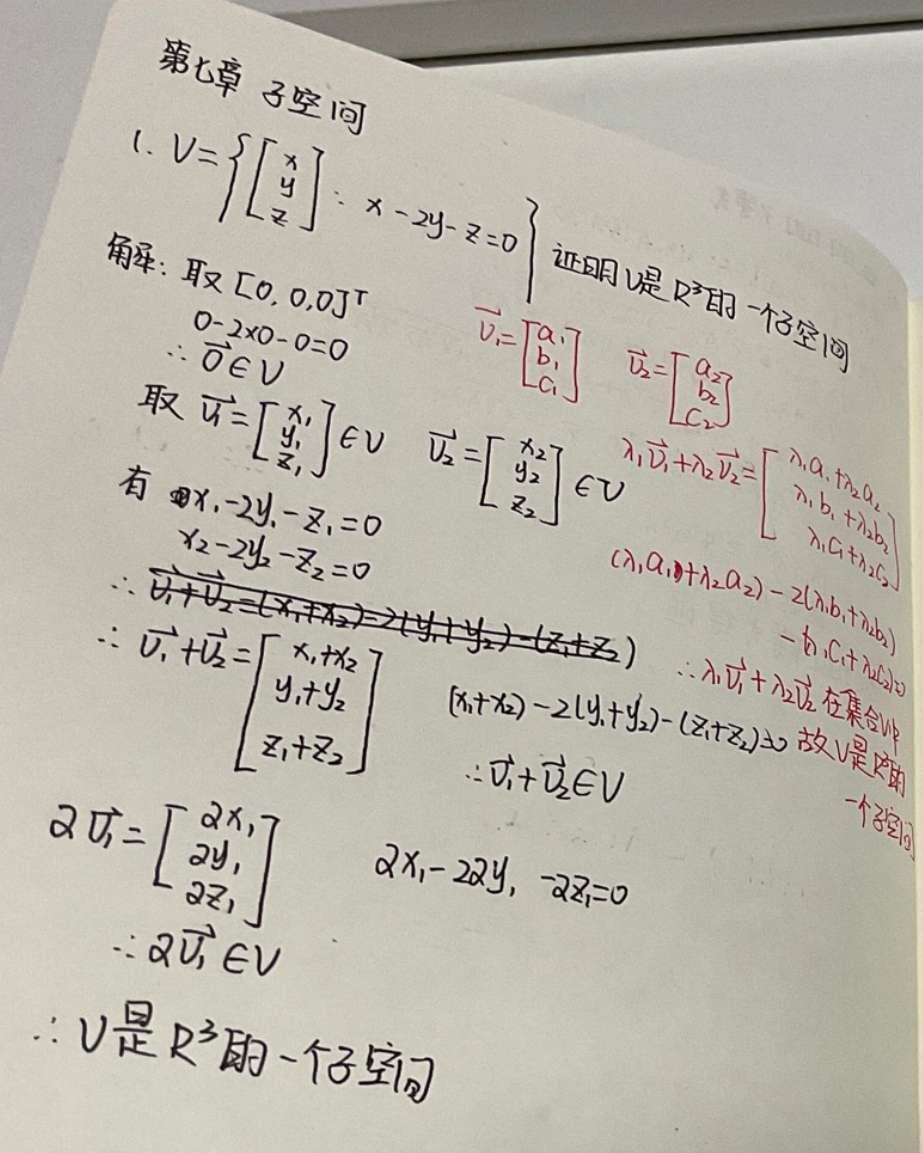 第七章 子空间
1. V={[x y z]: x-2y-z=0} 证明V是R³的一个子空间
解: 取[0,0,0]ᵀ
0-2×0-0=0
∴ 0⃗∈V
取 v₁⃗=[x₁ y₁ z₁]∈V v₂⃗=[x₂ y₂ z₂]∈V
有 x₁-2y₁-z₁=0
x₂-2y₂-z₂=0
∴ v₁⃗+v₂⃗=(x₁+x₂)-2(y₁+y₂)-(z₁+z₂)
∴ v₁⃗+v₂⃗=[x₁+x₂ y₁+y₂ z₁+z₂] (x₁+x₂)-2(y₁+y₂)-(z₁+z₂)=0
∴ v₁⃗+v₂⃗∈V
2v₁⃗=[2x₁ 2y₁ 2z₁] 2x₁-22y₁-2z₁=0
∴ 2v₁⃗∈V
∴ V是R³的一个子空间
v₁⃗=[a₁ b₁ c₁] v₂⃗=[a₂ b₂ c₂]
λ₁v₁⃗+λ₂v₂⃗=[λ₁a₁+λ₂a₂ λ₁b₁+λ₂b₂ λ₁c₁+λ₂c₂]
(λ₁a₁+λ₂a₂)-2(λ₁b₁+λ₂b₂)
-(λ₁c₁+λ₂c₂)=0
∴ λ₁v₁⃗+λ₂v₂⃗在集合V中
故V是R³的
一个子空间